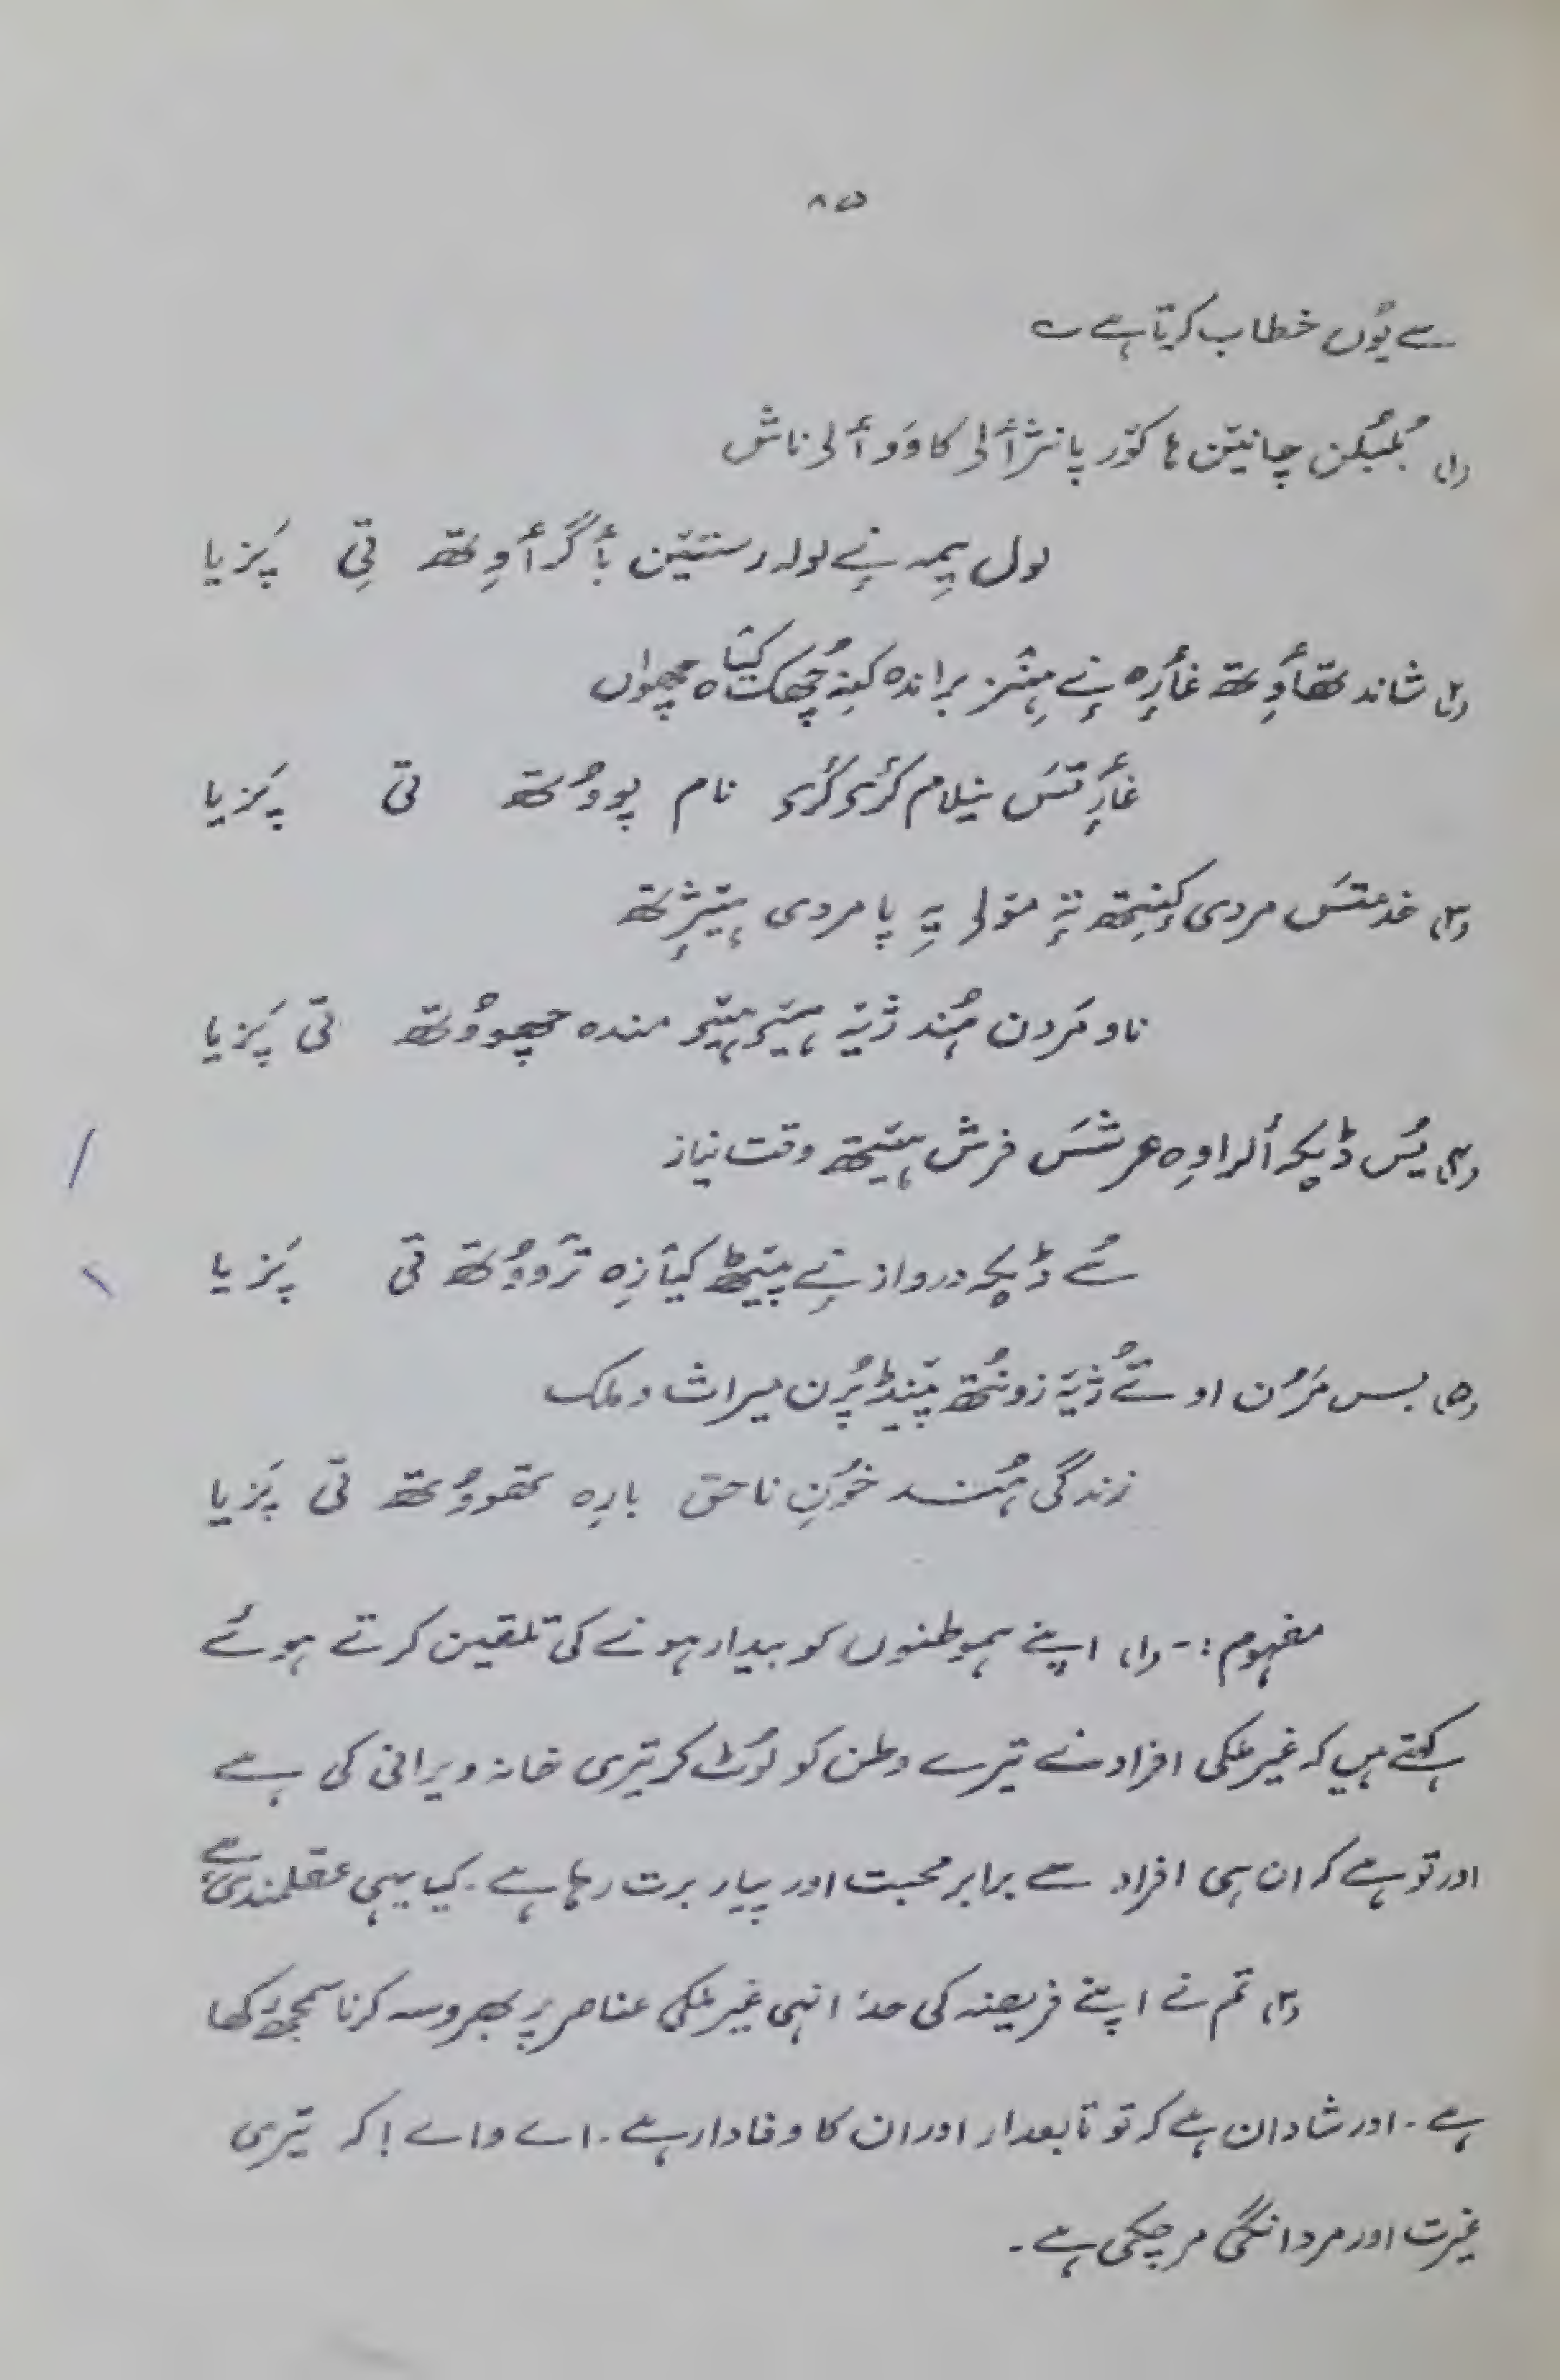 ۸۵
سے یوُں خطاب کرتا ہے ؎
(۱) بُلبُلن چانیَن ہا کوٚر پانژٲلۍ کاوَو ٲلۍ ناش
لول یِمہ نے لولہ رستیَن بٲگرٲوِتھ تِی پَزیا
(۲) شاند تھٲوِتھ غٲرٕ ہٕنٛز براندہ کنہِ چھُکھ کیٛاہ چھواں
غٲرتَس نیٖلام کٔرۍ کٔرۍ نام پوووُتھ تی پَزیا
(۳) خدمتَس مردی کٔنِتھ تہٕ مۄلۍ یہِ پامردی ہیٚژتھ
نامردن ہُند ژےٚ ہیٚو ہیٚو مندہ چھوووُتھ تی پَزیا
(۴) یُس ڈیکہ اَلراوِہ عرشَس فرش ہیٚتھ وقت نیاز
سُے ڈیکہ درواز نے پیٚٹھ کیٛازِہ تروووُتھ تی پَزیا
(۵) بس مَرُن اوسُے ژےٚ زونُتھ پنیٛڈپُرن میراث و ملک
زندگی ہُند خوُنِ ناحق بارہ تھوووُتھ تی پَزیا
مفہوم :- (۱) اپنے ہموطنوں کو بیدار ہونے کی تلقین کرتے ہوئے
کہتے ہیں کہ غیر ملکی افراد نے تیرے وطن کو لُوٹ کر تیری خانہ ویرانی کی ہے
اور تو ہے کہ ان ہی افراد سے برابر محبت اور پیار برت رہا ہے۔ کیا یہی عقلمندی ہے؟
(۲) تم نے اپنے فریضہ کی حد انہی غیر ملکی عناصر پر بھروسہ کرنا سمجھ رکھا
ہے۔ اور شادان ہے کہ تو تابعدار اور ان کا وفادار ہے۔ اے واے! کہ تیری
غیرت اور مردانگی مر چکی ہے۔